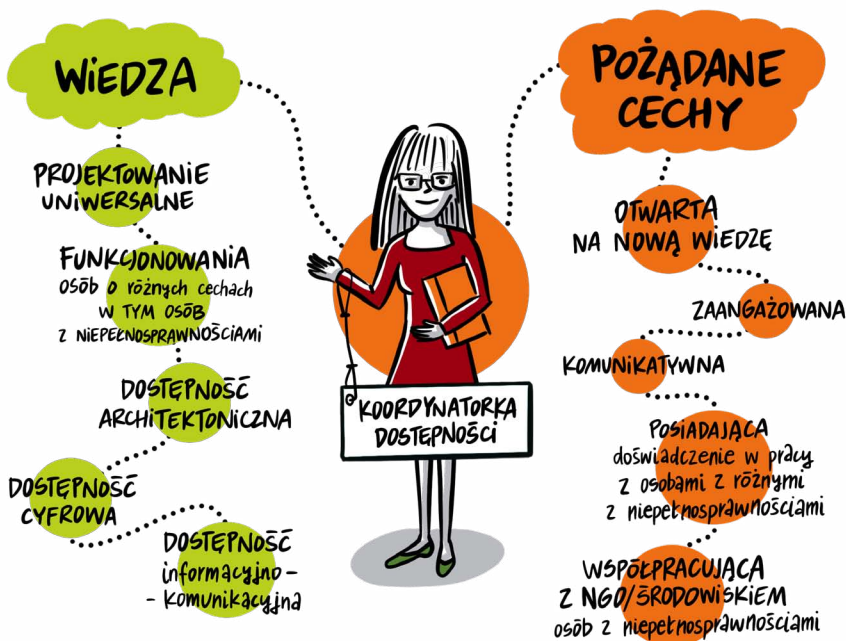 WIEDZA
PROJEKTOWANIE
UNIWERSALNE
FUNKCJONOWANIA
osób o różnych cechach
W TYM OSÓB
Z NIEPEŁNOSPRAWNOŚCIAMI
DOSTĘPNOŚĆ
ARCHITEKTONICZNA
DOSTĘPNOŚĆ
CYFROWA
DOSTĘPNOŚĆ
informacyjno -
- komunikacyjna
KOORDYNATORKA
DOSTĘPNOŚCI
POŻĄDANE
CECHY
OTWARTA
NA NOWĄ WIEDZĘ
ZAANGAŻOWANA
KOMUNIKATYWNA
POSIADAJĄCA
doświadczenie w pracy
z osobami z różnymi
z niepełnosprawnościami
WSPÓŁPRACUJĄCA
Z NGO/ŚRODOWISKIEM
osób z niepełnosprawnościami